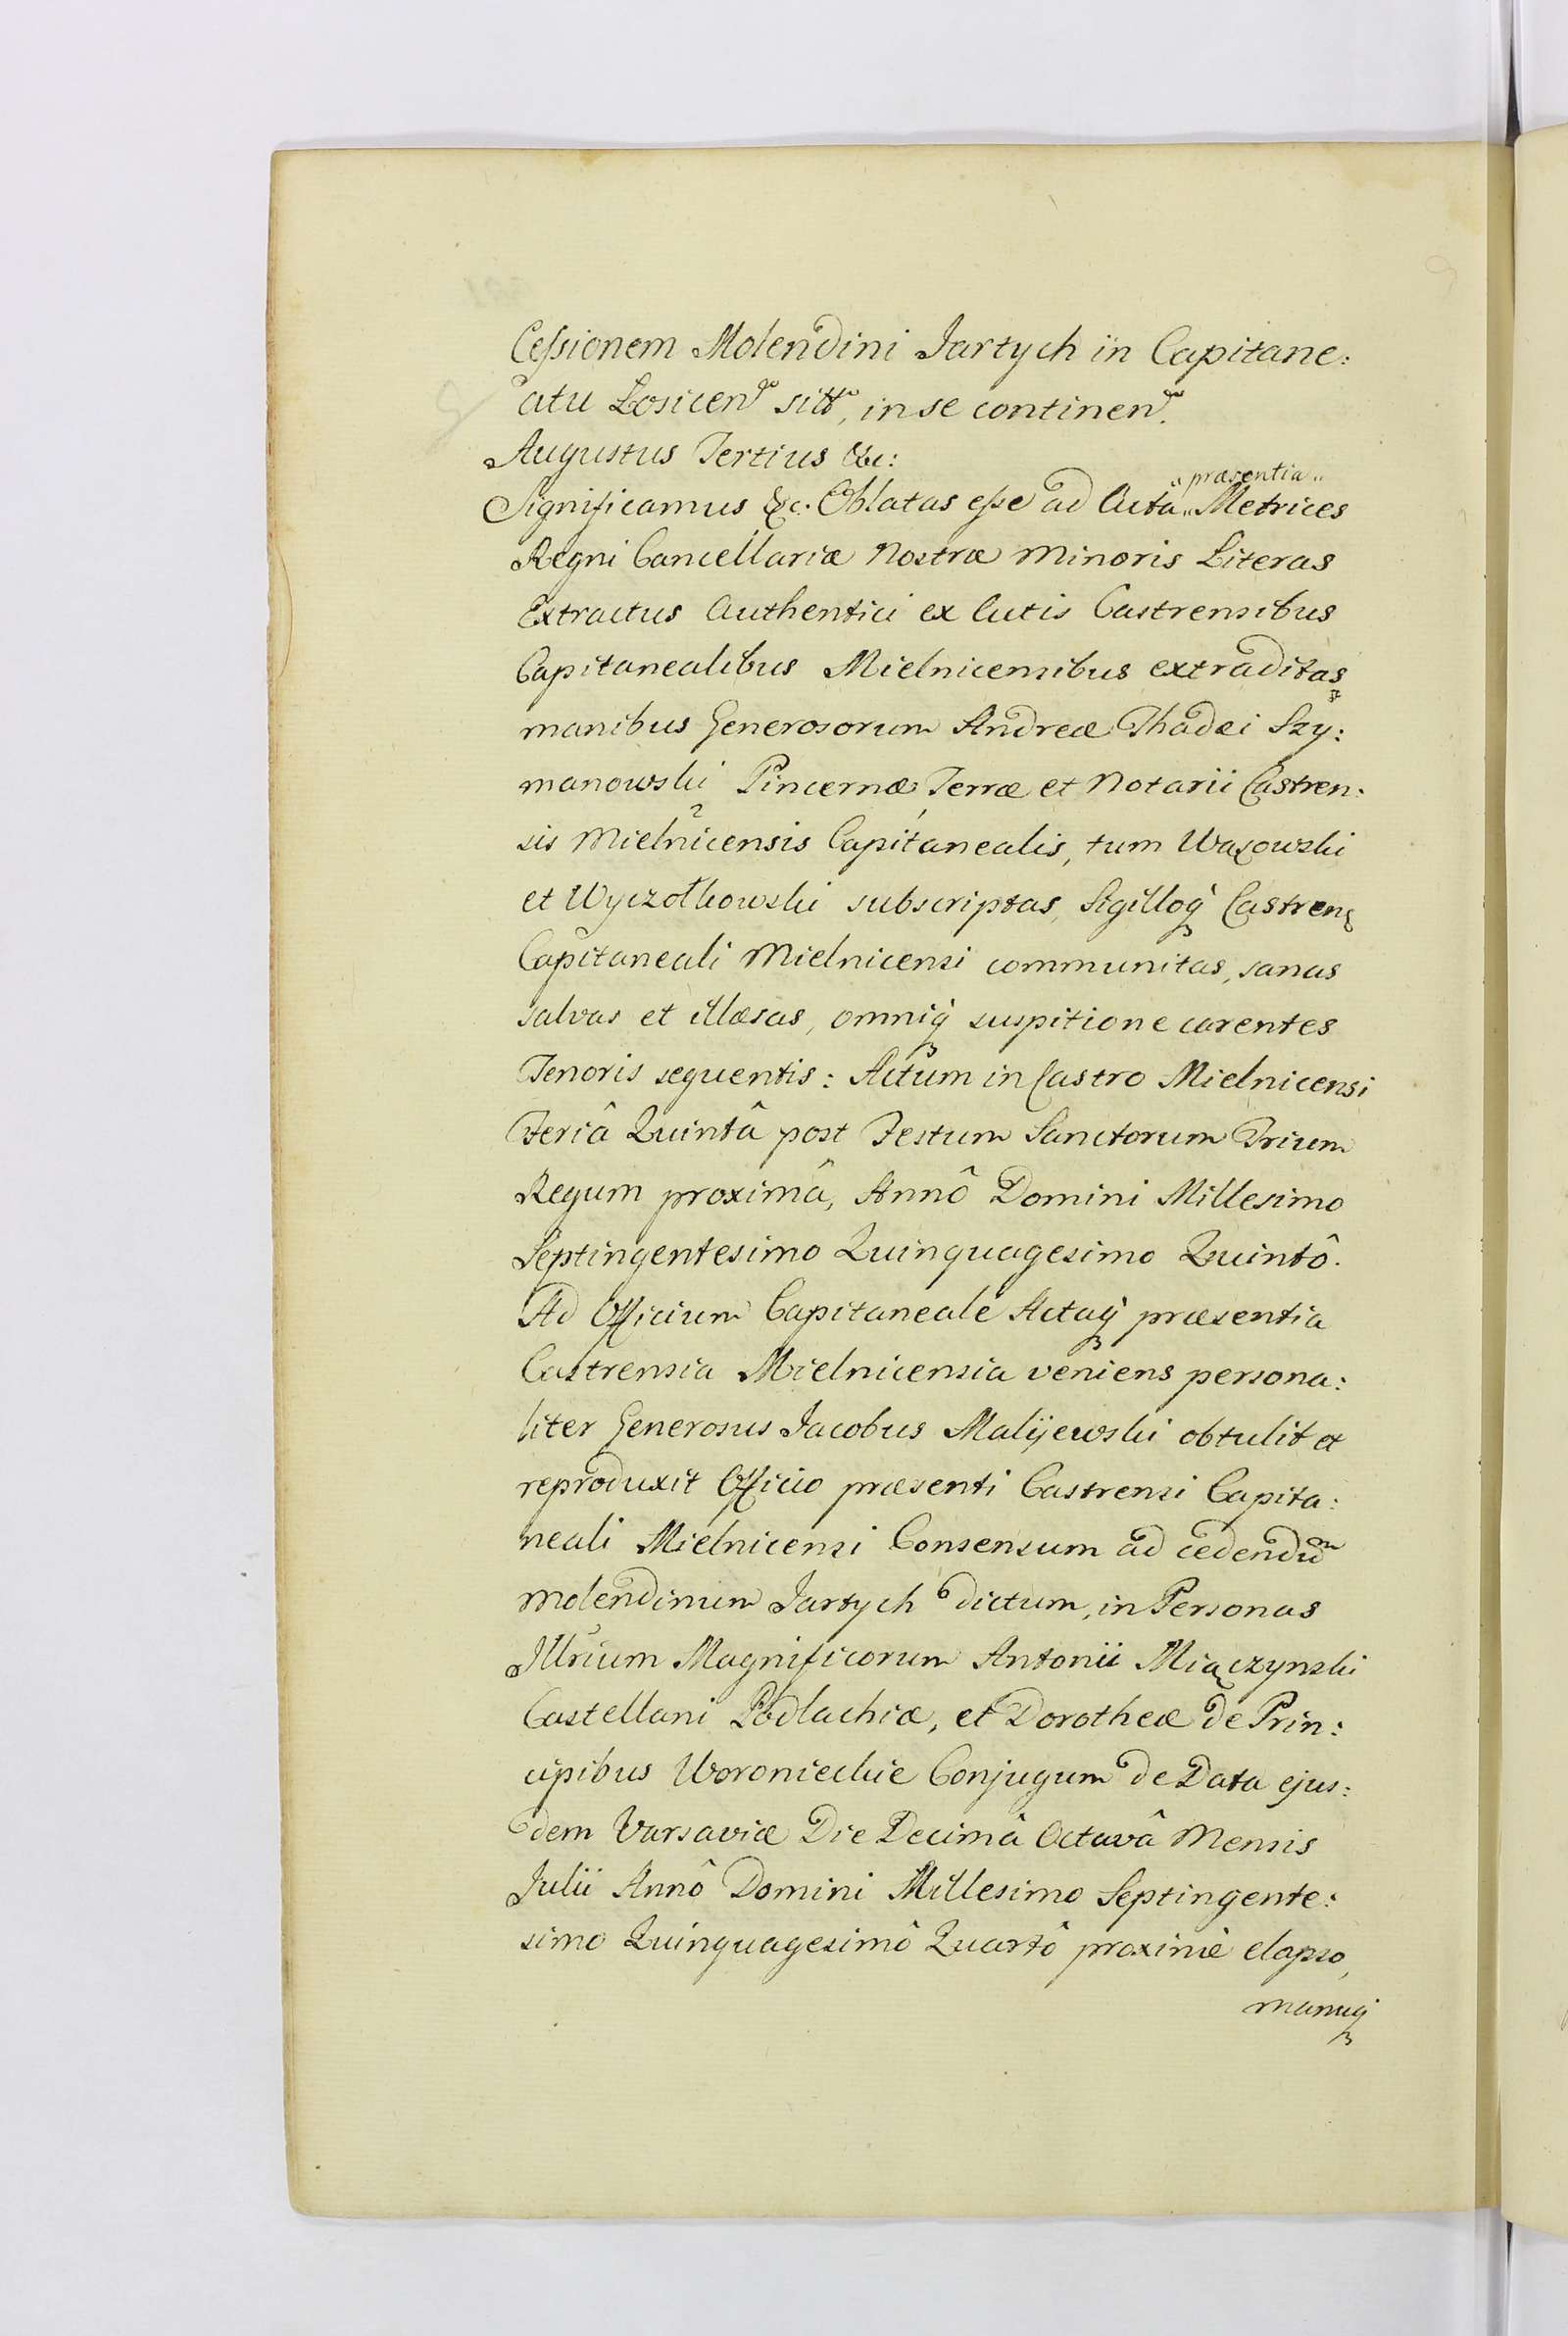 Cessionem Molendini Jartych in Capitane:
atu Łosicen sitt, in se continen.
Augustus Tertius &c:
præsentia
Significamus &c. Oblatas esse ad Acta Metrices
Regni Cancellariæ Nostræ Minoris Literas
Extractus Authentici ex Actis Castrensibus
Capitanealibus Mielnicensibus extraditas
manibus Generosorum Andreæ Thadæi Szy:
manowski Pincernæ Terræ et Notarii Castren:
sis Mielnicensis Capitanealis, tum Wasowski
et Wyczołkowski subscriptas, Sigilloq̀ Castren
Capitaneali Mielnicensi communitas, sanas
salvas et illæsas, omniq̀ suspitione carentes
Tenoris sequentis: Actum in Castro Mielnicensi
Feriâ Quintâ post Festum Sanctorum Trium
Regum proximâ, Annô Domini Millesimo
Septingentesimo Quinquagesimo Quintô.
Ad Officium Capitaneale Actaq̀ præsentia
Castrensia Mielnicensia veniens persona:
liter Generosus Jacobus Malijewski obtulit et
reproduxit Officio præsenti Castrensi Capita:
neali Mielnicensi Consensum ad cedendum
Molendinum Jartych dictum, in Personas
Illrium Magnificorum Antonii Miączynski
Castellani Podlachiæ, et Dorotheæ de Prin:
cipibus Woronieckie Conjugum de Data ejus:
dem Varsaviæ Die Decimâ Octavâ Mensis
Julii Annô Domini Millesimo Septingente:
simo Quinquagesimô Quartô proximè elapso,
manuq